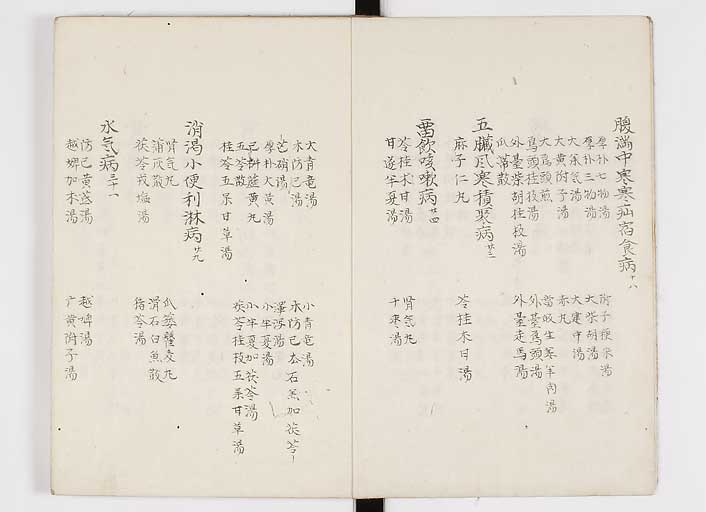 腹満中寒寒疝宿食病 十八
厚朴七物湯
附子粳米湯
厚朴三物湯
大柴胡湯
大承氣湯
大建中湯
大黄附子湯
赤丸
大烏頭煎
當皈生姜羊肉湯
烏頭桂枝湯
外臺烏頭湯
外臺柴胡桂枝湯
外臺走馬湯
瓜蒂散
五臓風寒積聚病 廿三
麻子仁丸
苓桂朮甘湯
畱飲咳嗽病 廿四
苓桂朮甘湯
腎気丸
甘遂半夏湯
十枣湯
大青竜湯
小青竜湯
木防已湯
木防已去石羔加茯苓
芒硝湯
澤泻湯
厚朴大黄湯
小半夏湯
已椒藶黄丸
小半夏加茯苓湯
五苓散
桂苓五味甘草湯
茯苓桂枝五味甘草湯
消渇小便利淋病 廿九
腎気丸
瓜蒌瞿麦丸
蒲灰散
滑石白魚散
茯苓戎塩湯
猪苓湯
水気病 三十一
防已黄芪湯
越婢湯
越婢加朮湯
广黄附子湯